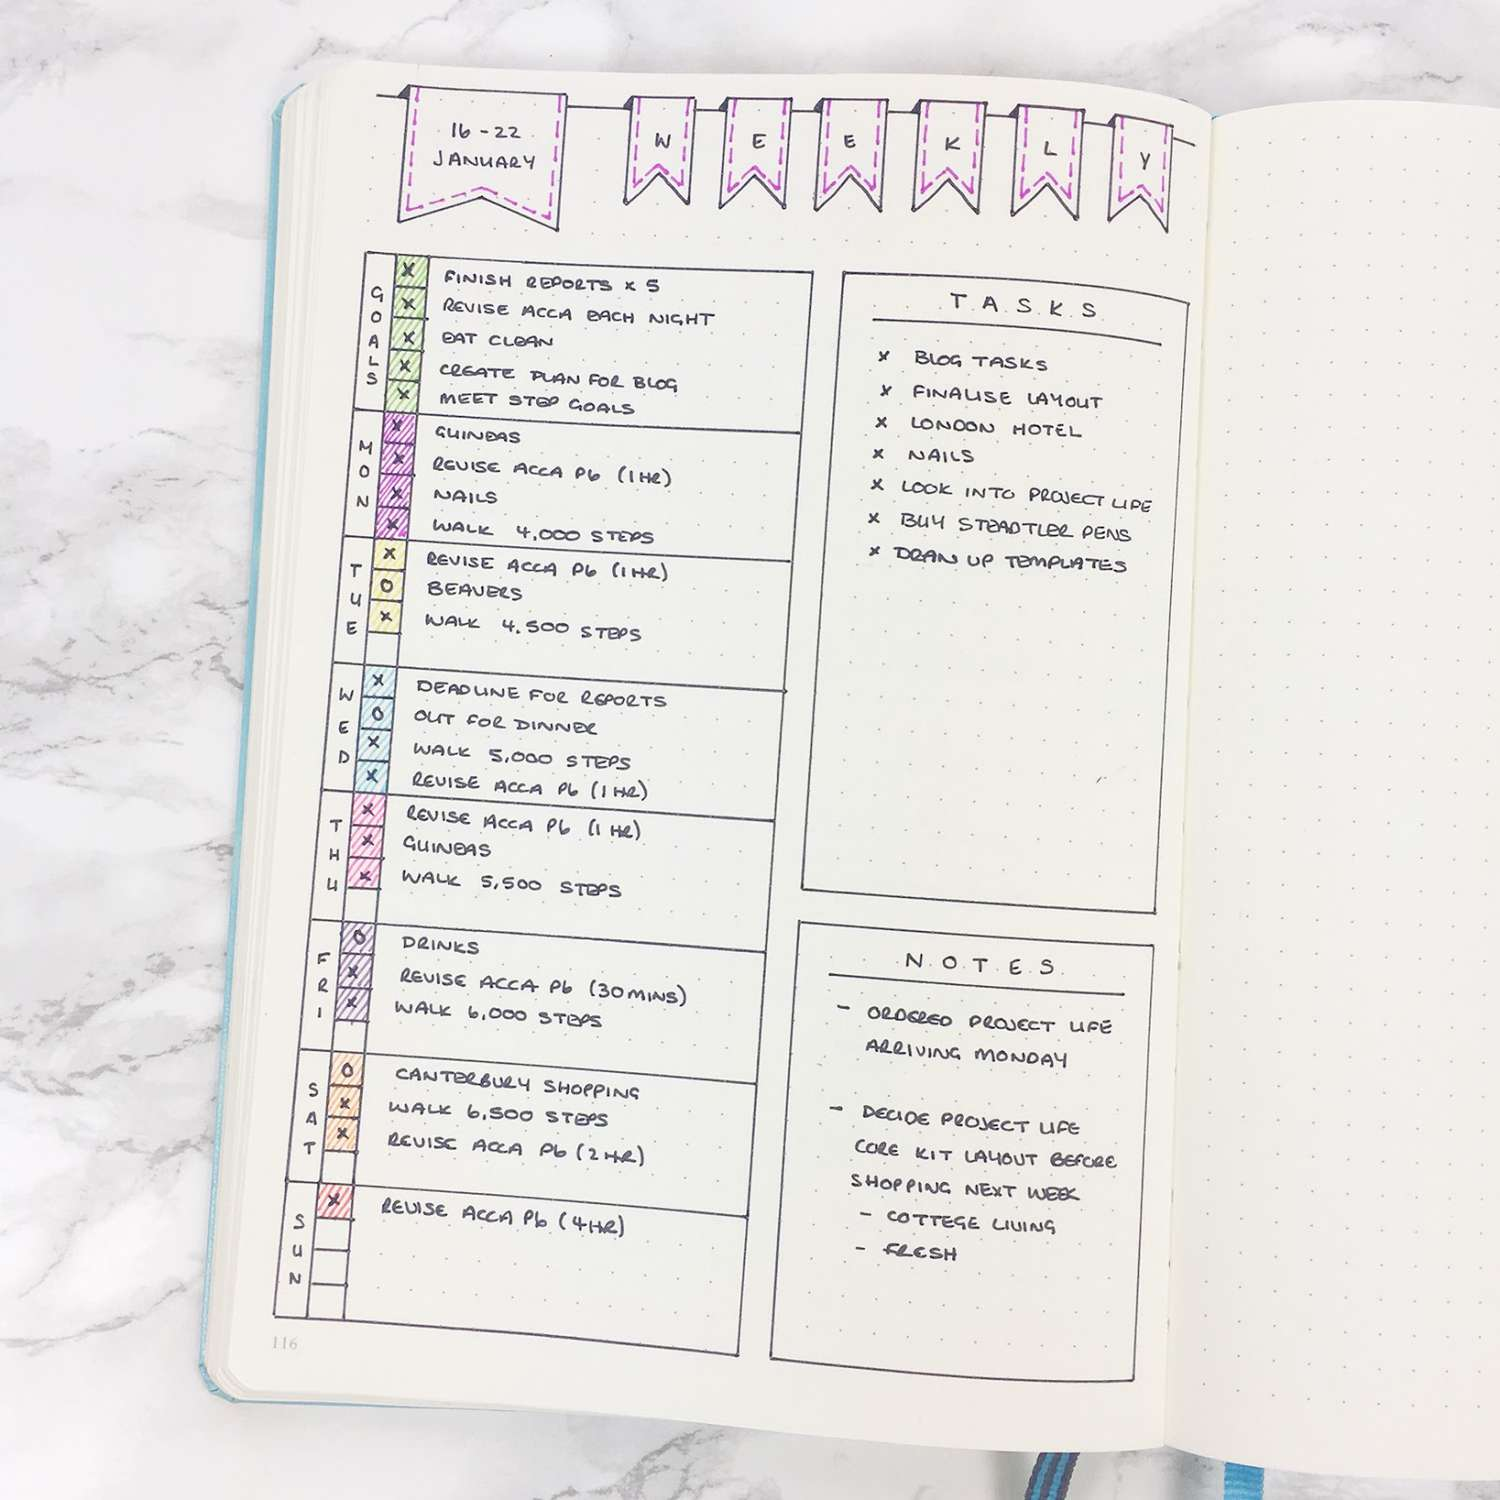 16-22
JANUARY
WEEKLY
GOALS
x FINISH REPORTS x 5
x REVISE ACCA EACH NIGHT
x EAT CLEAN
x CREATE PLAN FOR BLOG
x MEET STEP GOALS
MON
x GUINEAS
x REVISE ACCA P6 (1HR)
x NAILS
x WALK 4,000 STEPS
TUE
x REVISE ACCA P6 (1HR)
O BEAVERS
x WALK 4,500 STEPS
WED
x DEADLINE FOR REPORTS
O OUT FOR DINNER
x WALK 5,000 STEPS
x REVISE ACCA P6 (1HR)
THU
x REVISE ACCA P6 (1HR)
x GUINEAS
x WALK 5,500 STEPS
FRI
O DRINKS
x REVISE ACCA P6 (30MINS)
x WALK 6,000 STEPS
SAT
O CANTERBURY SHOPPING
x WALK 6,500 STEPS
x REVISE ACCA P6 (2HR)
SUN
x REVISE ACCA P6 (4HR)
TASKS
x BLOG TASKS
x FINALISE LAYOUT
x LONDON HOTEL
x NAILS
x LOOK INTO PROJECT LIFE
x BUY STEADTLER PENS
x DRAW UP TEMPLATES
NOTES
- ORDERED PROJECT LIFE
ARRIVING MONDAY
- DECIDE PROJECT LIFE
CORE KIT LAYOUT BEFORE
SHOPPING NEXT WEEK
- COTTEGE LIVING
- FRESH
116